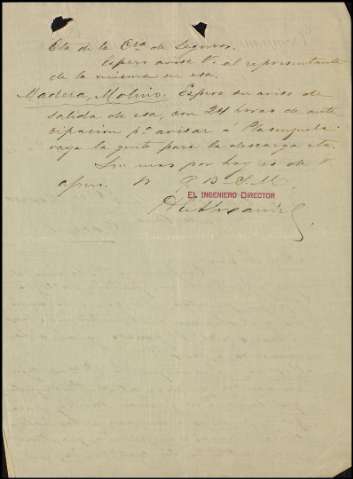 Cta de la Cia de Seguros.
Espero avise V. al representante
de la misma en esa.
Madera, Molino. Espero su aviso de
salida de esa, con 24 horas de anti
cipación pa avisar á
vaya la gente para la descarga etc.
Sin mas por hoy es de V
afmo. S. q. B. S. M.
EL INGENIERO DIRECTOR